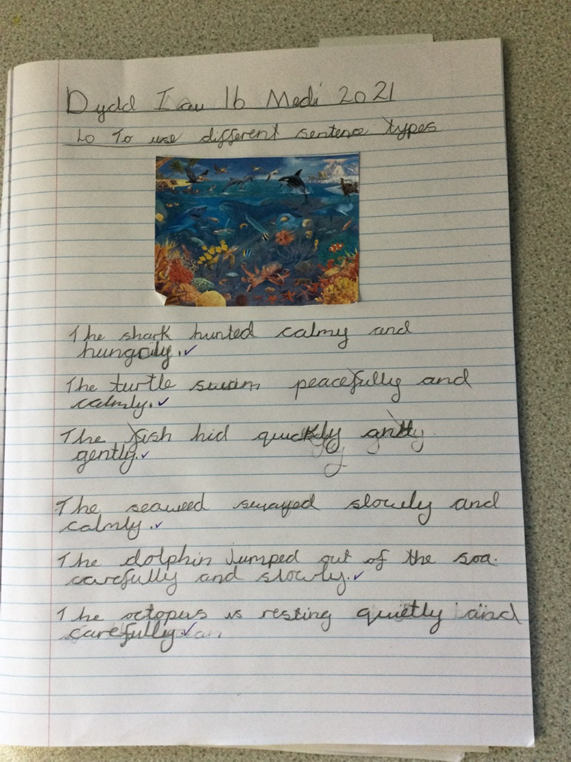 Dydd Iau 16 Medi 2021
LO To use different sentence types
The shark hunted calmy and
hungrily.
The turtle swam peacefully and
calmly.
The fish hid quickly
gently.
The seaweed swayed slowly and
calmly.
The dolphin jumped out of the sea.
carefully and slowly.
The octopus is resting quietly and
carefully.